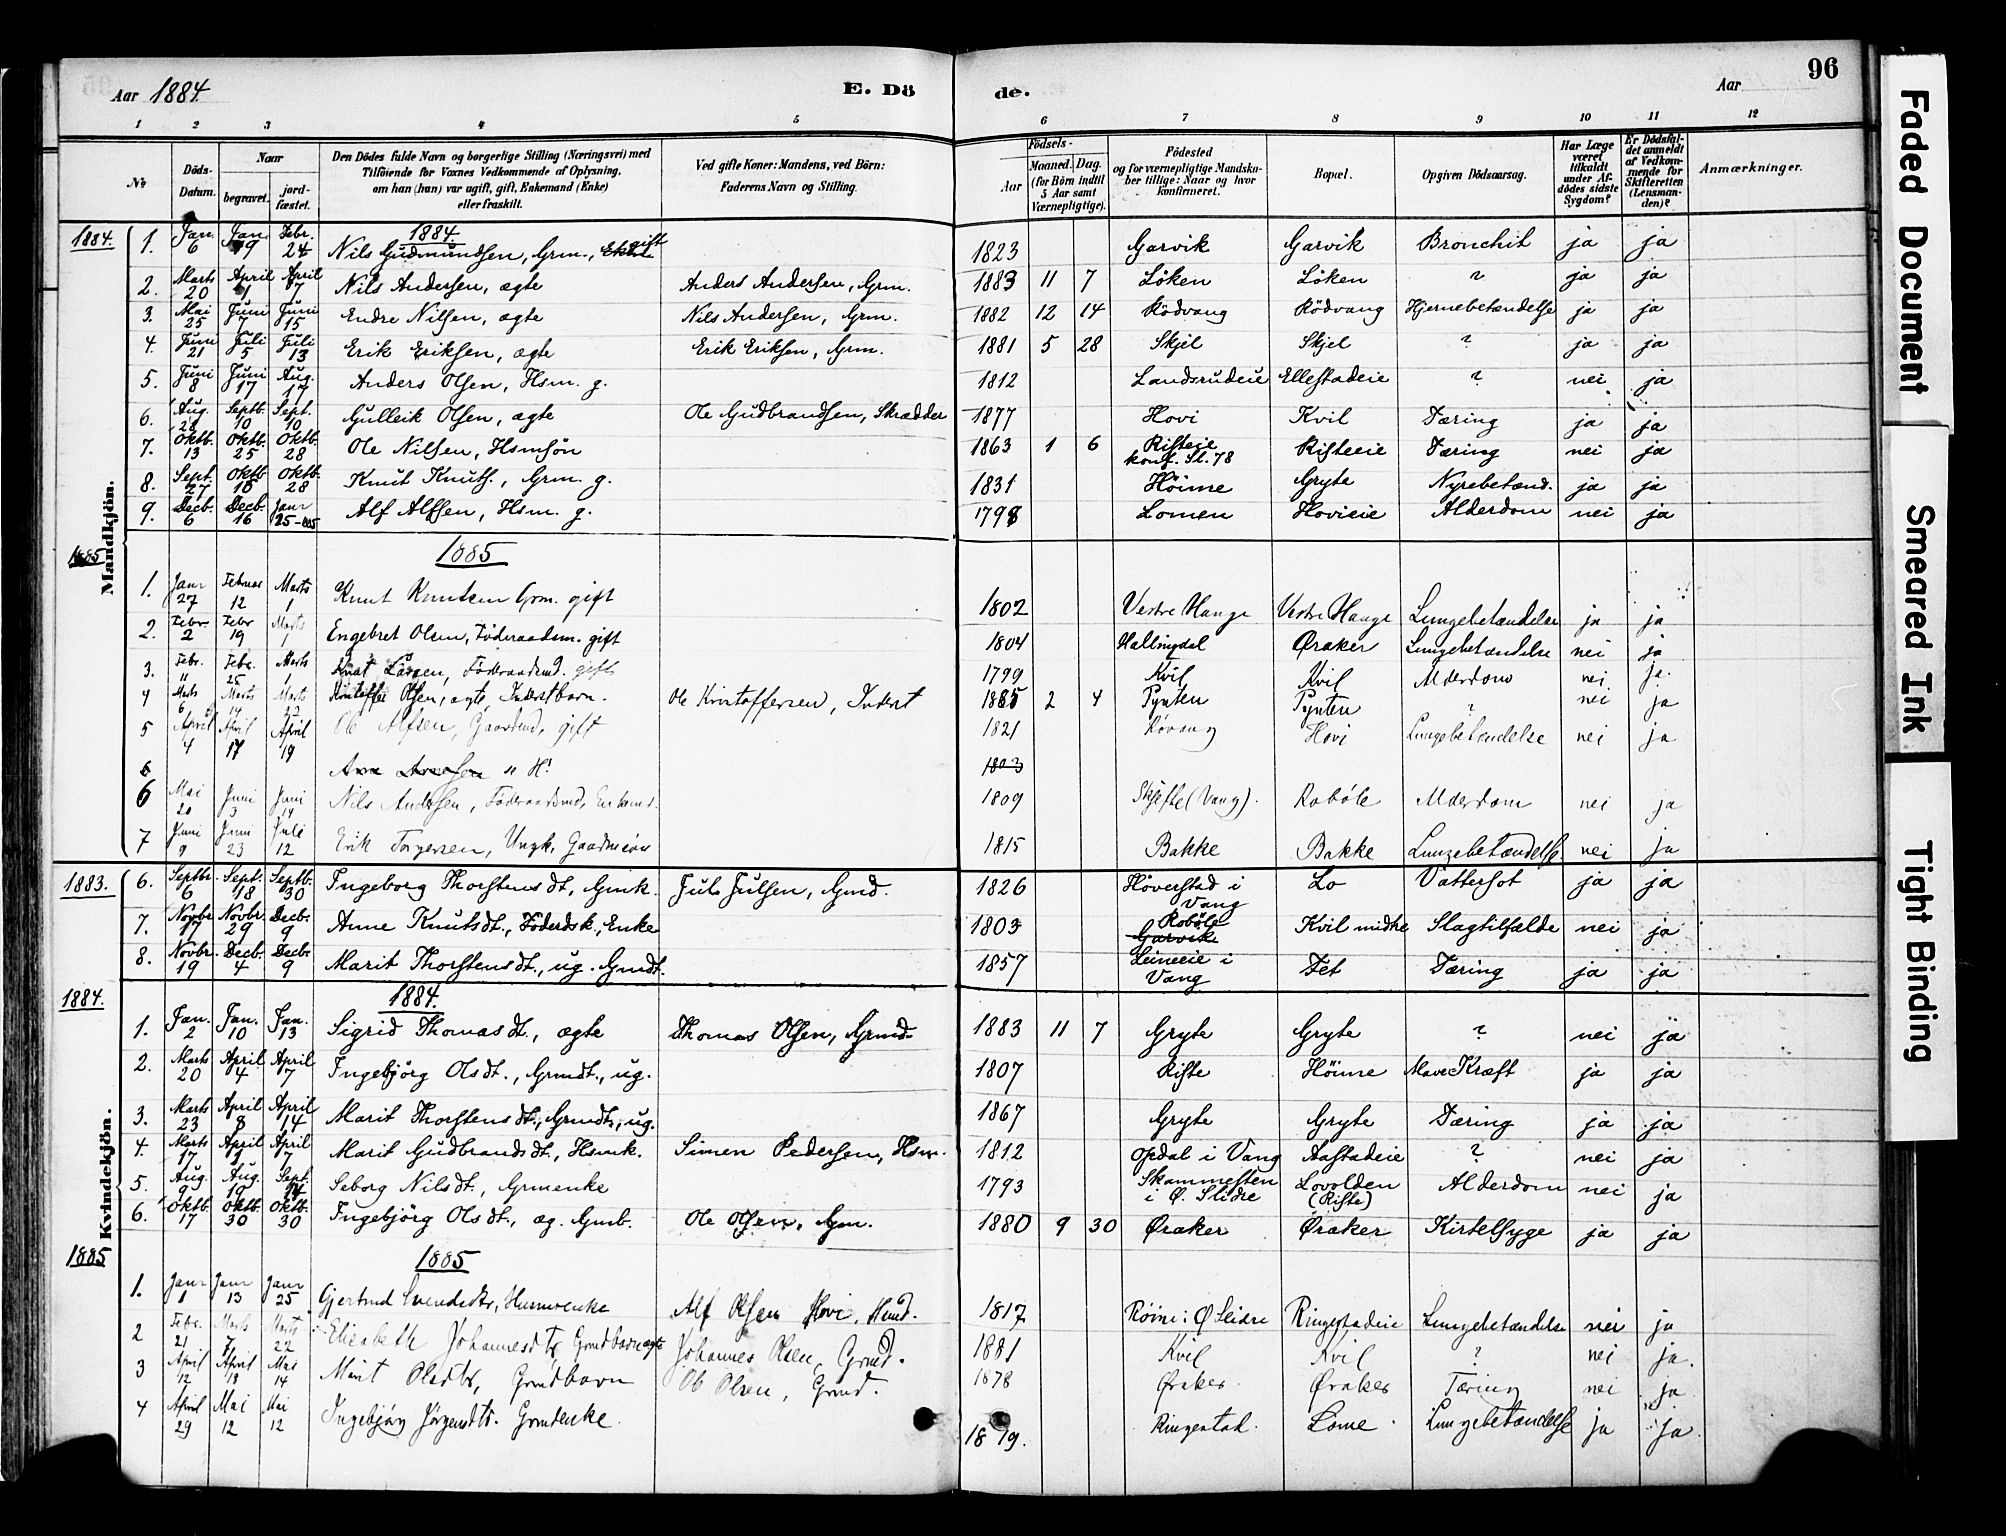 Aar 1884. E. Dö de. Aar 96
1 2 3 4 5 6 7 8 9 10 11 12
No
Döds-Datum.
Naar
begravet.
jord-fæstet.
Den Dödes fulde Navn og borgerlige Stilling (Næringsvei) med Tilföiende for Voxnes Vedkommende af Oplysning, om han (hun) var ugift, gift, Enkemand (Enke) eller fraskilt.
Ved gifte Koner: Mandens, ved Börn: Faderens Navn og Stilling.
Födsels-
Aar
Maaned. Dag.
(for Börn indtil 5 Aar samt Værnepligtige).
Födested og for værnepligtige Mandskaber tillige: Naar og hvor konfirmeret.
Bopæl.
Opgiven Dödsaarsag.
Har Læge været tilkaldt under Afdödes sidste Sygdom?
Er Dödsfaldet anmeldt af Vedkommende for Skifteretten (Lensmanden)?
Anmærkninger.
Mandkjön.
1884. 1884.
1. Jan. 6 Jan 19 Febr. 24 Nils Gudmundsen, Grm., gift 1823 Garvik Garvik Bronchit ja ja
2. Marts 20 April 1 April 7 Nils Andersen, ægte Anders Andersen, Grm. 1883 11 7 Löken Löken ? ja ja
3. Mai 25 Juni 7 Juni 15 Endre Nilsen, ægte Nils Andersen, Grm. 1882 12 14 Rödvang Rödvang Hjernebetændelse ja ja
4. Juni 21 Juli 5 Juli 13 Erik Eriksen, ægte Erik Eriksen, Grm. 1881 5 28 Skjel Skjel ? ja ja
5. Juni 8 Juni 17 Aug. 17 Anders Olsen, Hsm. g. 1812 Landsrudeie Ellestadeie ? nei ja
6. Aug. 28 Septb. 10 Sept. 10 Gulleik Olsen, ægte Ole Gudbrandsen, Skrædder 1877 Hovi Kvil Tæring ja ja
7. Oktb. 13 Oktb. 25 Oktb. 28 Ole Nilsen, Hsmsön 1863 1 6 Risteie konf. Sl. 78 Risteeie Tæring nei ja
8. Sept. 27 Oktb 18 Oktb. 28 Knut Knuts., Grm. g. 1831 Höime Gryte Nyrebetænd. ja ja
9. Decb. 6 Decb. 16 Janr 25-85 Alf Alfsen, Hsm. g. 1798 Lomen Hovieie Alderdom nei ja
1885 1885
1. Janr 27 Februar 12 Marts 1 Knut Knutsen Grm. gift 1802 Vestre Hauge Vestre Hauge Lungebetændelse ja ja
2. Febr. 2 Febr 19 Marts 1 Engebret Olsen, Föderaadsm. gift 1804 Hallingdal Øraker Lungebetændelse nei ja
3. Febr. 11 Febr. 25 Marts 1 Knut Larsen, Föderaadsmd. gift 1799 Kvil Kvil Alderdom nei ja.
4 Marts 6 Marts 14 Marts 22 Kristoffer Olsen, ægte Inderstbarn. Ole Kristoffersen, Inderst 1885 2 4 Pynten Pynten ? nei ja
5 April 4 April 17 April 19 Ole Alfsen, Gaardmd, gift 1821 Hovi Lungebetændelse nei ja
6 1803
6 Mai 20 Juni 3 Juni 14 Nils Andersen, Föderaadsmd, Enkemd. 1809 Skjefte (Vang). Robøle Alderdom nei ja
7 Juni 9 Juni 23 Juli 12 Erik Torgersen, Ungk, Gaardmesön 1815 Bakke Bakke Lungebetændelse. nei ja
Kvindekjön.
1883.
6. Septbr. 6 Sept. 18 Septb. 30 Ingeborg Thorstensdt, Gmk. Juls Julsen, Gmd. 1826 Höverstad i Vang Lo Vattersot ja ja
7. Novbr 17 Novbr. 29 Decb. 9 Anne Knutsdt., Föderdsk, Enke 1803 Robøle Garvik Kvil midtre Slagtilfælde nei ja
8. Novbr. 19 Decb. 4 Decb. 9 Marit Thorstensdt., ug. Gmdt. 1857 Leineeie i Vang Tet Tæring ja ja
1884. 1884.
1. Jan. 2 Jan. 10 Jan. 13 Sigrid Thomasdt., ægte Thomas Olsen, Grmd. 1883 11 7 Gryte Gryte ? nei ja
2. Marts 20 April 4 April 7 Ingebjörg Olsdt., Grmdt., ug. 1807 Riste Höime Mavekræft ja ja
3. Marts 23 April 8 April 14 Marit Thorstensdt., Grmdt., ug. 1867 Gryte Gryte Tæring ja ja
4. Marts 17 April 1 April 7 Marit Gudbrandsdt., Hsmk. Simen Pedersen, Hsm. 1812 Opdal i Vang Aastadeie ? nei ja
5. Aug. 9 Aug. 19 Sept. 14 Seborg Nilsdt., Grmenke 1793 Skammesten i Ø. Slidre Lovolden (Riste) Alderdom nei ja
6. Oktb. 17 Oktb. 30 Oktb. 30 Ingebjörg Olsdt., æg. Gmb. Ole Olsen, Gm. 1880 9 30 Øraker Øraker Kirtelsyge ja ja
1885 1885
1. Janr 1 Janr 13 Janr 25 Gjertrud Svendsdtr, Husmenke Alf Olsen Hovi, Hmd. 1817 Røine i Ø Slidre Ringestadeie Lungebetændelse nei ja
2 Febr. 21 Marts 7 Marts 22 Elisabeth Johannesdtr Grmdbarn ægte Johannes Olsen, Grmd. 1881 Kvil Kvil ? nei ja.
3 April 12 April 18 Mai 14 Marit Olsdtr, Grmdbarn Ole Olsen, Grmd. 1878 Øraker. Øraker Tæring nei ja
4 April 29 Mai 12 Mai 12 Ingebjörg Jörgensdtr. Grmdenke. 1819. Ringestad. Lome. Lungebetændelse ja ja.
Faded Document
Smeared Ink
Tight Binding